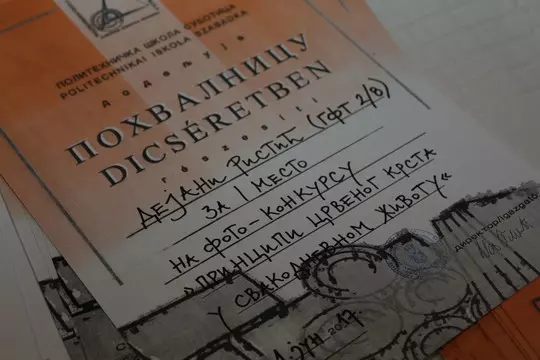 ПОЛИТЕХНИЧКА ШКОЛА СУБОТИЦА
POLITECHNIKAI ISKOLA SZABADKA
додељује
ПОХВАЛНИЦУ
DICSÉRETBEN
részesíti
ДЕЈАНИ РИСТИЋ (ГФТ 2/8)
ЗА I МЕСТО
НА ФОТО-КОНКУРСУ
„ПРИНЦИПИ ЦРВЕНОГ КРСТА
У СВАКОДНЕВНОМ ЖИВОТУ“
директор/igazgató
ЈУН 2017.